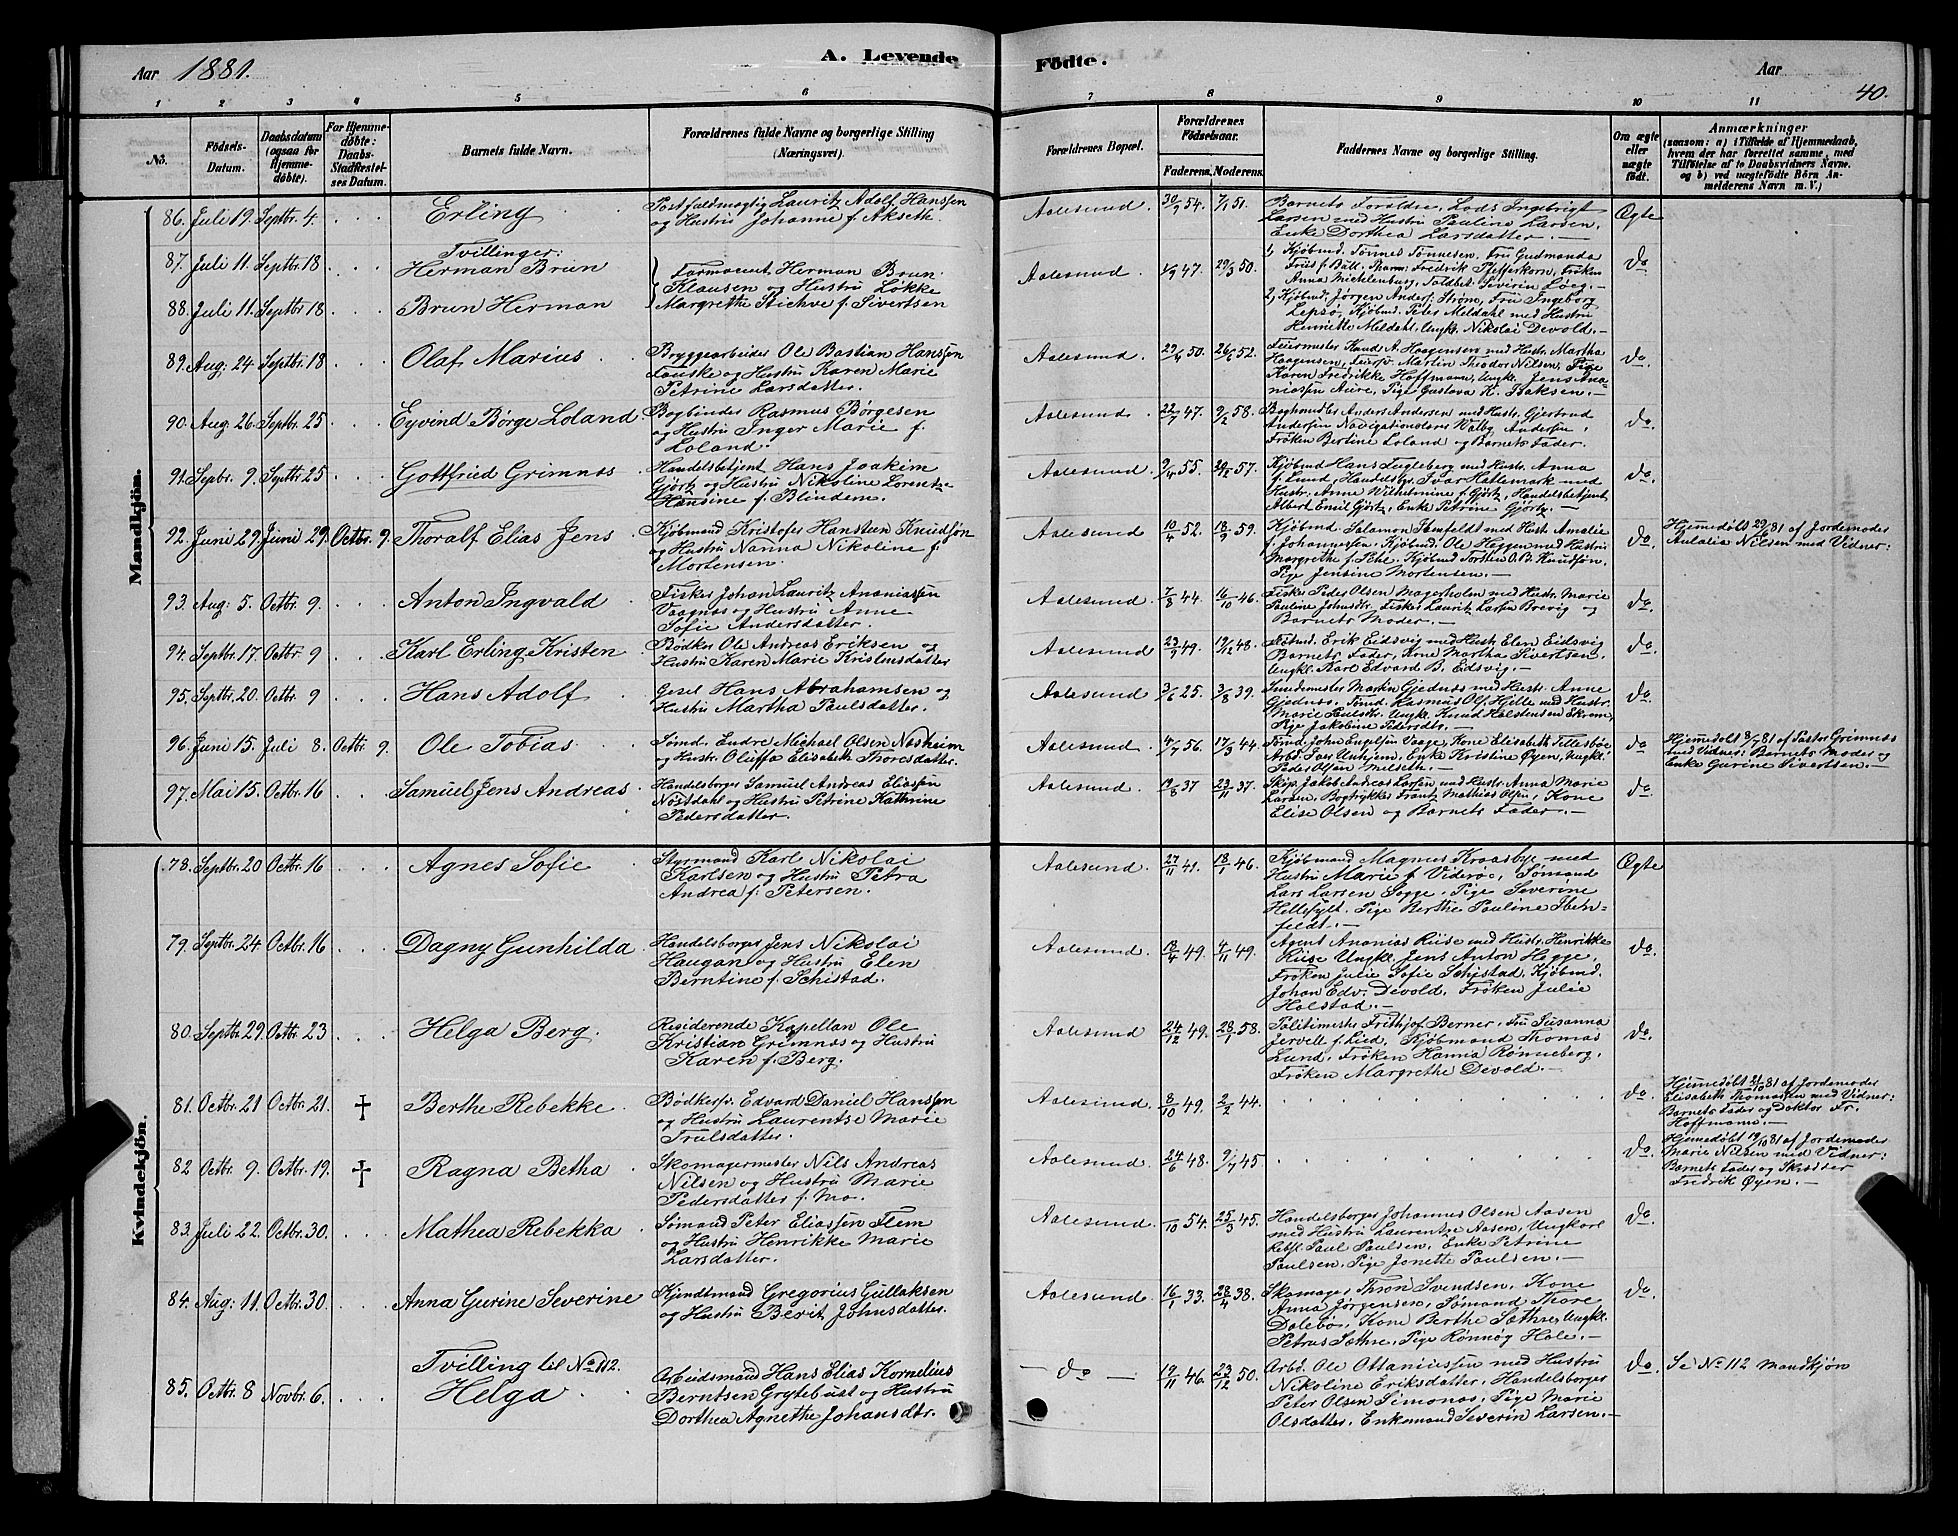 Aar 1881.
A. Levende
Födte.
Aar
40.
1 2 3 4 5 6 7 8 9 10 11
No.
Födsels-
Datum.
Daabsdatum
(ogsaa for
Hjemme-
döbte).
For Hjemme-
döbte:
Daabs-
Stadfæstel-
ses Datum.
Barnets fulde Navn.
Forældrenes fulde Navne og borgerlige Stilling
(Næringsvei).
Forældrenes Bopæl.
Forældrenes
Födselsaar.
Faderens. Moderens.
Faddernes Navne og borgerlige Stilling.
Om ægte
eller
uægte
födt.
Anmærkninger
(saasom: a) i Tilfælde af Hjemmedaab,
hvem der har forrettet samme, med
Tilföielse af to Daabsvidners Navne,
og b) ved uægtefödte Börn An-
melderens Navn m. V.)
Mandkjön.
86. Juli 19. Septbr. 4. Erling
Postfuldmægtig Lauritz Adolf Hanssen
og Hustru Johanne f. Akseth.
Aalesund 30/9 54. 7/1 51.
Barnets Forældre, Lods Ingebrigt
Larsen med Hustru Pauline Larsen,
Enke Dorthea Larsdatter.
Ægte
Tvillinger:
87. Juli 11. Septbr. 18 Herman Brun
88. Juli 11. Septbr. 18 Brun Herman
Farmaceut Herman Brun
Klausen og Hustru Løkke
Margrethe Stichve f. Sivertsen
Aalesund 4/9 47. 29/3 50.
1, Kjøbmd. Tønnes Tønnesen, Fru Gudmunda
Friis f. Bull, Pharm: Fredrik Pfefferkorn, Frøken
Anna Michlenburg, Toldbet. Sivirin Loeg.
2, Kjøbmd. Jørgen Anders. Strøm, Fru Ingeborg
Lepsø, Kjøbmd. Peter Meldahl med Hustru
Henriette Meldahl, Ungk. Nikolai Devold.
do
89. Aug: 24 Septbr. 18 Olaf Marius
Bryggearbeider Ole Bastian Hanssøn
Fauske og Hustru Karen Marie
Petrine Larsdatter.
Aalesund 29/6 50. 26/6 52.
Feiermester Knud A. Haagensen med Hustr. Martha
Haagensen, Feiersv. Martin Theodor Nilsen, Pige
Karen Fredrikke Hoffmann, Ungk. Jens Ana-
niassen Aure, Pige Gustava K. Baksen.
do.
90. Aug: 26. Septbr. 25 Eyvind Børge Loland
Bogbinder Rasmus Børgesen
og Hustru Inger Marie f.
Loland.
Aalesund. 22/7 47. 9/2 58.
Boghandler Anders Andersen med Hustr. Gjertrud
Andersen, Navigationslærer Walby Andersen,
Frøken Bertine Loland og Barnets Fader.
do.
91. Septbr. 9. Septbr. 25 Gottfried Grimnæs
Handelsbetjent Hans Joakim
Gjørtz og Hustru Nikoline Lorentze
Hansine f. Blindem.
Aalesund. 9/4 55. 57.
Kjøbmd Hans Fugleberg med Hustr. Anna
f. Lund, Handelsbgr. Ivar Hatlemark med
Hustr. Anne Wilhelmine f. Gjørtz, Handelsbetjent
Albert Emil Gjørtz, Enke Petrine Gjørtz.
do.
92. Juni 29. Juni 29. Octbr. 9. Thoralf Elias Jens
Kjøbmand Kristofer Hansteen Knudsøn
og Hustru Nanna Nikoline f.
Mortensen.
Aalesund 10/4 52. 18/9 59.
Kjøbmd. Salamon Ibenfeldt med Hustr. Amalie
f. Johannessen, Kjøbmd. Ole Heggen med Hustru
Margrethe f. Pehl. Kjøbmd Torsten O. B. Knudsøn,
Pige Jensine Mortensen.
do.
Hjemedøbt 29/6 81 af Jordemoder
Aulalia Nilsen med Vidner:
93. Aug: 5. Octbr. 9. Anton Ingvald
Fisker Johan Lauritz Ananiassen
Vaagnæs og Hustru Anne
Sofie Andersdatter.
Aalesund 7/8 44. 16/10 46.
Fisker Peder Olsen Magerholm med Hustr. Marie
Pauline Johnsdtr. Fisker Lauritz Larsen Brevig og
Barnets Moder.
do.
94. Septbr. 17. Octbr 9 Karl Erling Kristen
Bødker Ole Andreas Eriksen og
Hustru Karen Marie Kristensdatter
Aalesund 23/9 49. 19/12 48.
Fisker. Erik Eidsvig med Hustr. Elen Eidsvig
Barnets Fader, Kone Martha Sivertsen,
Ungkl. Karl Edvard B. Eidsvig.
do.
95. Septbr. 20. Octbr. 9 Hans Adolf
Gesel Hans Abrahamsen og
Hustru Martha Paulsdatter.
Aalesund. 3/6 25. 3/8 39.
Smedemester Martin Gjednæs med Hustr. Anne
Gjednæs. Tømd. Rasmus Ols. Hjelle med Hustr.
Marie Paulsdtr. Ungk. Knud Halstensen Ekrem,
Pige Jakobine Pedersdtr.
do.
96. Juni 15. Juli 8. Octbr. 9. Ole Tobias
Sømd. Endre Michael Olsen Nasheim
og Hustr. Oluffa Elisabeth Thoresdatter.
Aalesund 4/7 56. 17/3 44.
Tømd. John Engelsen Vaage, Kone Elisabeth Tellesbøe
Arbd. Iver Unhjem, Enke Kristine Øyen, Ungkl.
Peder Olsen Melseth.
do
Hjemedøbt 8/7 81 af Pastor Grimnæs
med Vidner: Barnets Moder og
Enke Gurine Sivertsen.
97. Mai 15. Octbr. 16 Samuel Jens Andreas
Handelsborger Samuel Andreas Eliassen
Nøstdahl og Hustru Petrine Kathrine
Pedersdatter.
Aalesund 19/8 37 23/11 37.
Skip. Jakob Andreas Larsen med Hustr. Anna Marie
Larsen, Bogtrykker Frantz Mathias Olsen, Kone
Elise Olsen og Barnets Fader.
do.
Kvindekjön.
78. Septbr. 20 Octbr. 16 Agnes Sofie
Styrmand Karl Nikolai
Karlsen og Hustru Petra
Andrea f. Petersen.
Aalesund. 27/11 41. 18/1 46.
Kjøbmand Magnus Kraasbye med
Hustru Marie f. Viderøe, Sømand
Lars Larsen Segge, Pige Severine
Hellesylt, Pige Berthe Pauline Iben-
feldt.
Ægte
79. Septbr. 24 Octbr. 16 Dagny Gunhilda
Handelsborger Jens Nikolai
Haugan og Hustru Elen
Berntine f. Schistad.
Aalesund. 18/4 49. 4/11 49.
Agent Ananias Riise med Hustr. Henrikke
Riise Ungkl. Jens Anton Hegge,
Frøken Julie Sofie Schistad, Kjøbmd.
Johan Edv. Devold, Frøken Julie
Holstad.
do.
80. Septbr. 29. Octbr. 23 Helga Berg.
Residerende Kapellan Ole
Kristian Grimnæs og Hustru
Karen f. Berg.
Aalesund 24/12 49. 28/1 58.
Politimester Frithjof Berner, Fru Susanna
Jervell f. Lied, Kjøbmand Thomas
Lund, Frøken Hanna Rønneberg,
Frøken Margrethe Devold.
do.
81. Octbr. 21 Octbr. 21. † Berthe Rebekke.
Bødkersv. Edvard Daniel Hanssøn
og Hustru Laurentse Marie
Trulsdatter.
Aalesund. 8/10 49. 2/2 44.
do.
Hjemedøbt 21/10 81 af Jordemoder
Elisabeth Thomassen med Vidner:
Barnets Fader og Doktor Fr.
Hoffmann.
82 Octbr. 9. Octbr. 19. † Ragna Betha
Skomagermester Nils Andreas
Nilsen og Hustru Marie
Pedersdatter f. Mo.
Aalesund. 24/6 48. 9/7 45.
do.
Hjemedøbt 19/10 81 af Jordemoder
Marie Nilsen med Vidner:
Barnets Fader og Skrædder
Fredrik Øyen.
83. Juli 22. Octbr. 30. Mathea Rebekka
Sømand Peter Eliassen Flem
og Hustru Henrikke Marie
Larsdatter.
Aalesund. /10 54. 25/3 45.
Handelsborger Johannes Olsen Aasen
med Hustru Laurentze Aasen, Ungkarl
Rebsl. Paul Paulsen, Enke Petrine
Paulsen, Pige Jonette Paulsen.
do.
84. Aug: 11. Octbr. 30. Anna Gurine Severine
Kjendtmand Gregorius Gullaksen
og Hustru Berit Johnsdatter.
Aalesund. 16/1 33. 28/4 38.
Skomager Thron Svendsen, Kone
Anna Jørgensen, Sømand Thore
Dalebø, Kone Berthe Sæthre, Ungkl.
Petrus Sæthre, Pige Rønnøg Hole.
do.
Tvilling til No 112.
85. Octbr. 8 Novbr. 6. Helga
Arbeidsmand Hans Elias Kornelius
Berntsen Grytebust og Hustru
Dorthea Agnethe Johansdtr.
do 19/11 46. 23/12 50.
Arbd. Ole Ottaniussen med Hustru
Nikoline Eriksdatter, Handelsborger
Peter Olsen Simonas, Pige Marie
Olsdatter, Enkemand Severin Larsen.
do.
Se No 112 Mandkjøn